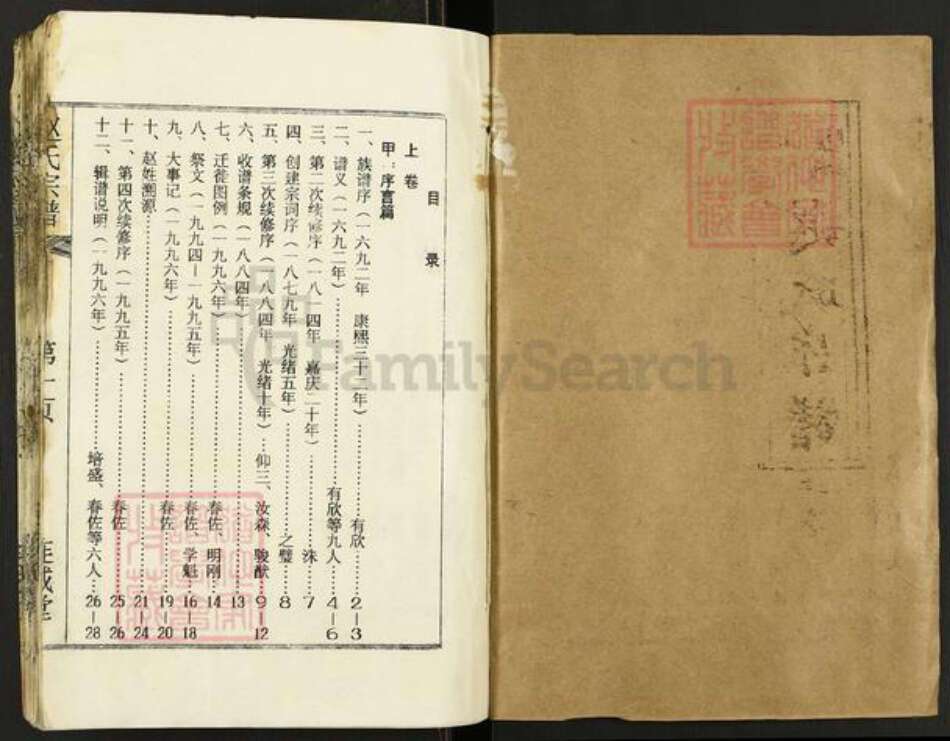 目录
上卷
甲：序言篇
一、族谱序（一六九二年 康熙三十一年）……有欣……2—3
二、谱义（一六九二年）……有欣等九人……4—6
三、第二次续修序（一八一四年 嘉庆二十年）……洙……7
四、创建宗词序（一八七九年 光绪五年）……之璧……8
五、第三次续修序（一八八四年 光绪十年）…仰三、汝森、骏猷…9—12
六、收谱条规（一八八四年）……13
七、迁徙图例（一九九六年）……春佐、明刚……14
八、祭文（一九九四—一九九五年）……春佐、学魁……16—18
九、大事记（一九九六年）……春佐……19—20
十、赵姓溯源……21—24
十一、第四次续修序（一九九五年）……春佐……25 26
十二、辑谱说明（一九九六年）……培盛、春佐等六人……26—28
赵氏宗谱
FamilySearch